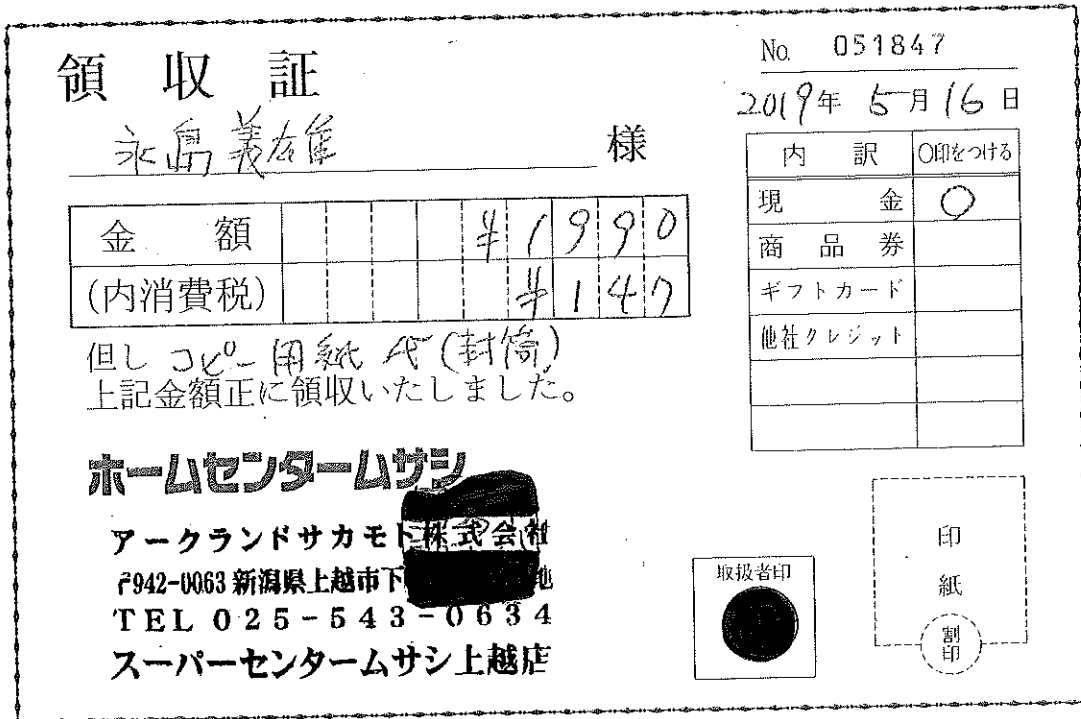 領収証
No. 051847
2019年 5月16日
永島義雄 様
内訳 ○印をつける
現金 ○
商品券
ギフトカード
他社クレジット
金額 ¥1990
(内消費税) ¥147
但し コピー用紙代(封筒)
上記金額正に領収いたしました。
ホームセンタームサシ
アークランドサカモト株式会社
〒942-0063 新潟県上越市下 地
TEL 025-543-0634
スーパーセンタームサシ上越店
取扱者印
印紙
割印